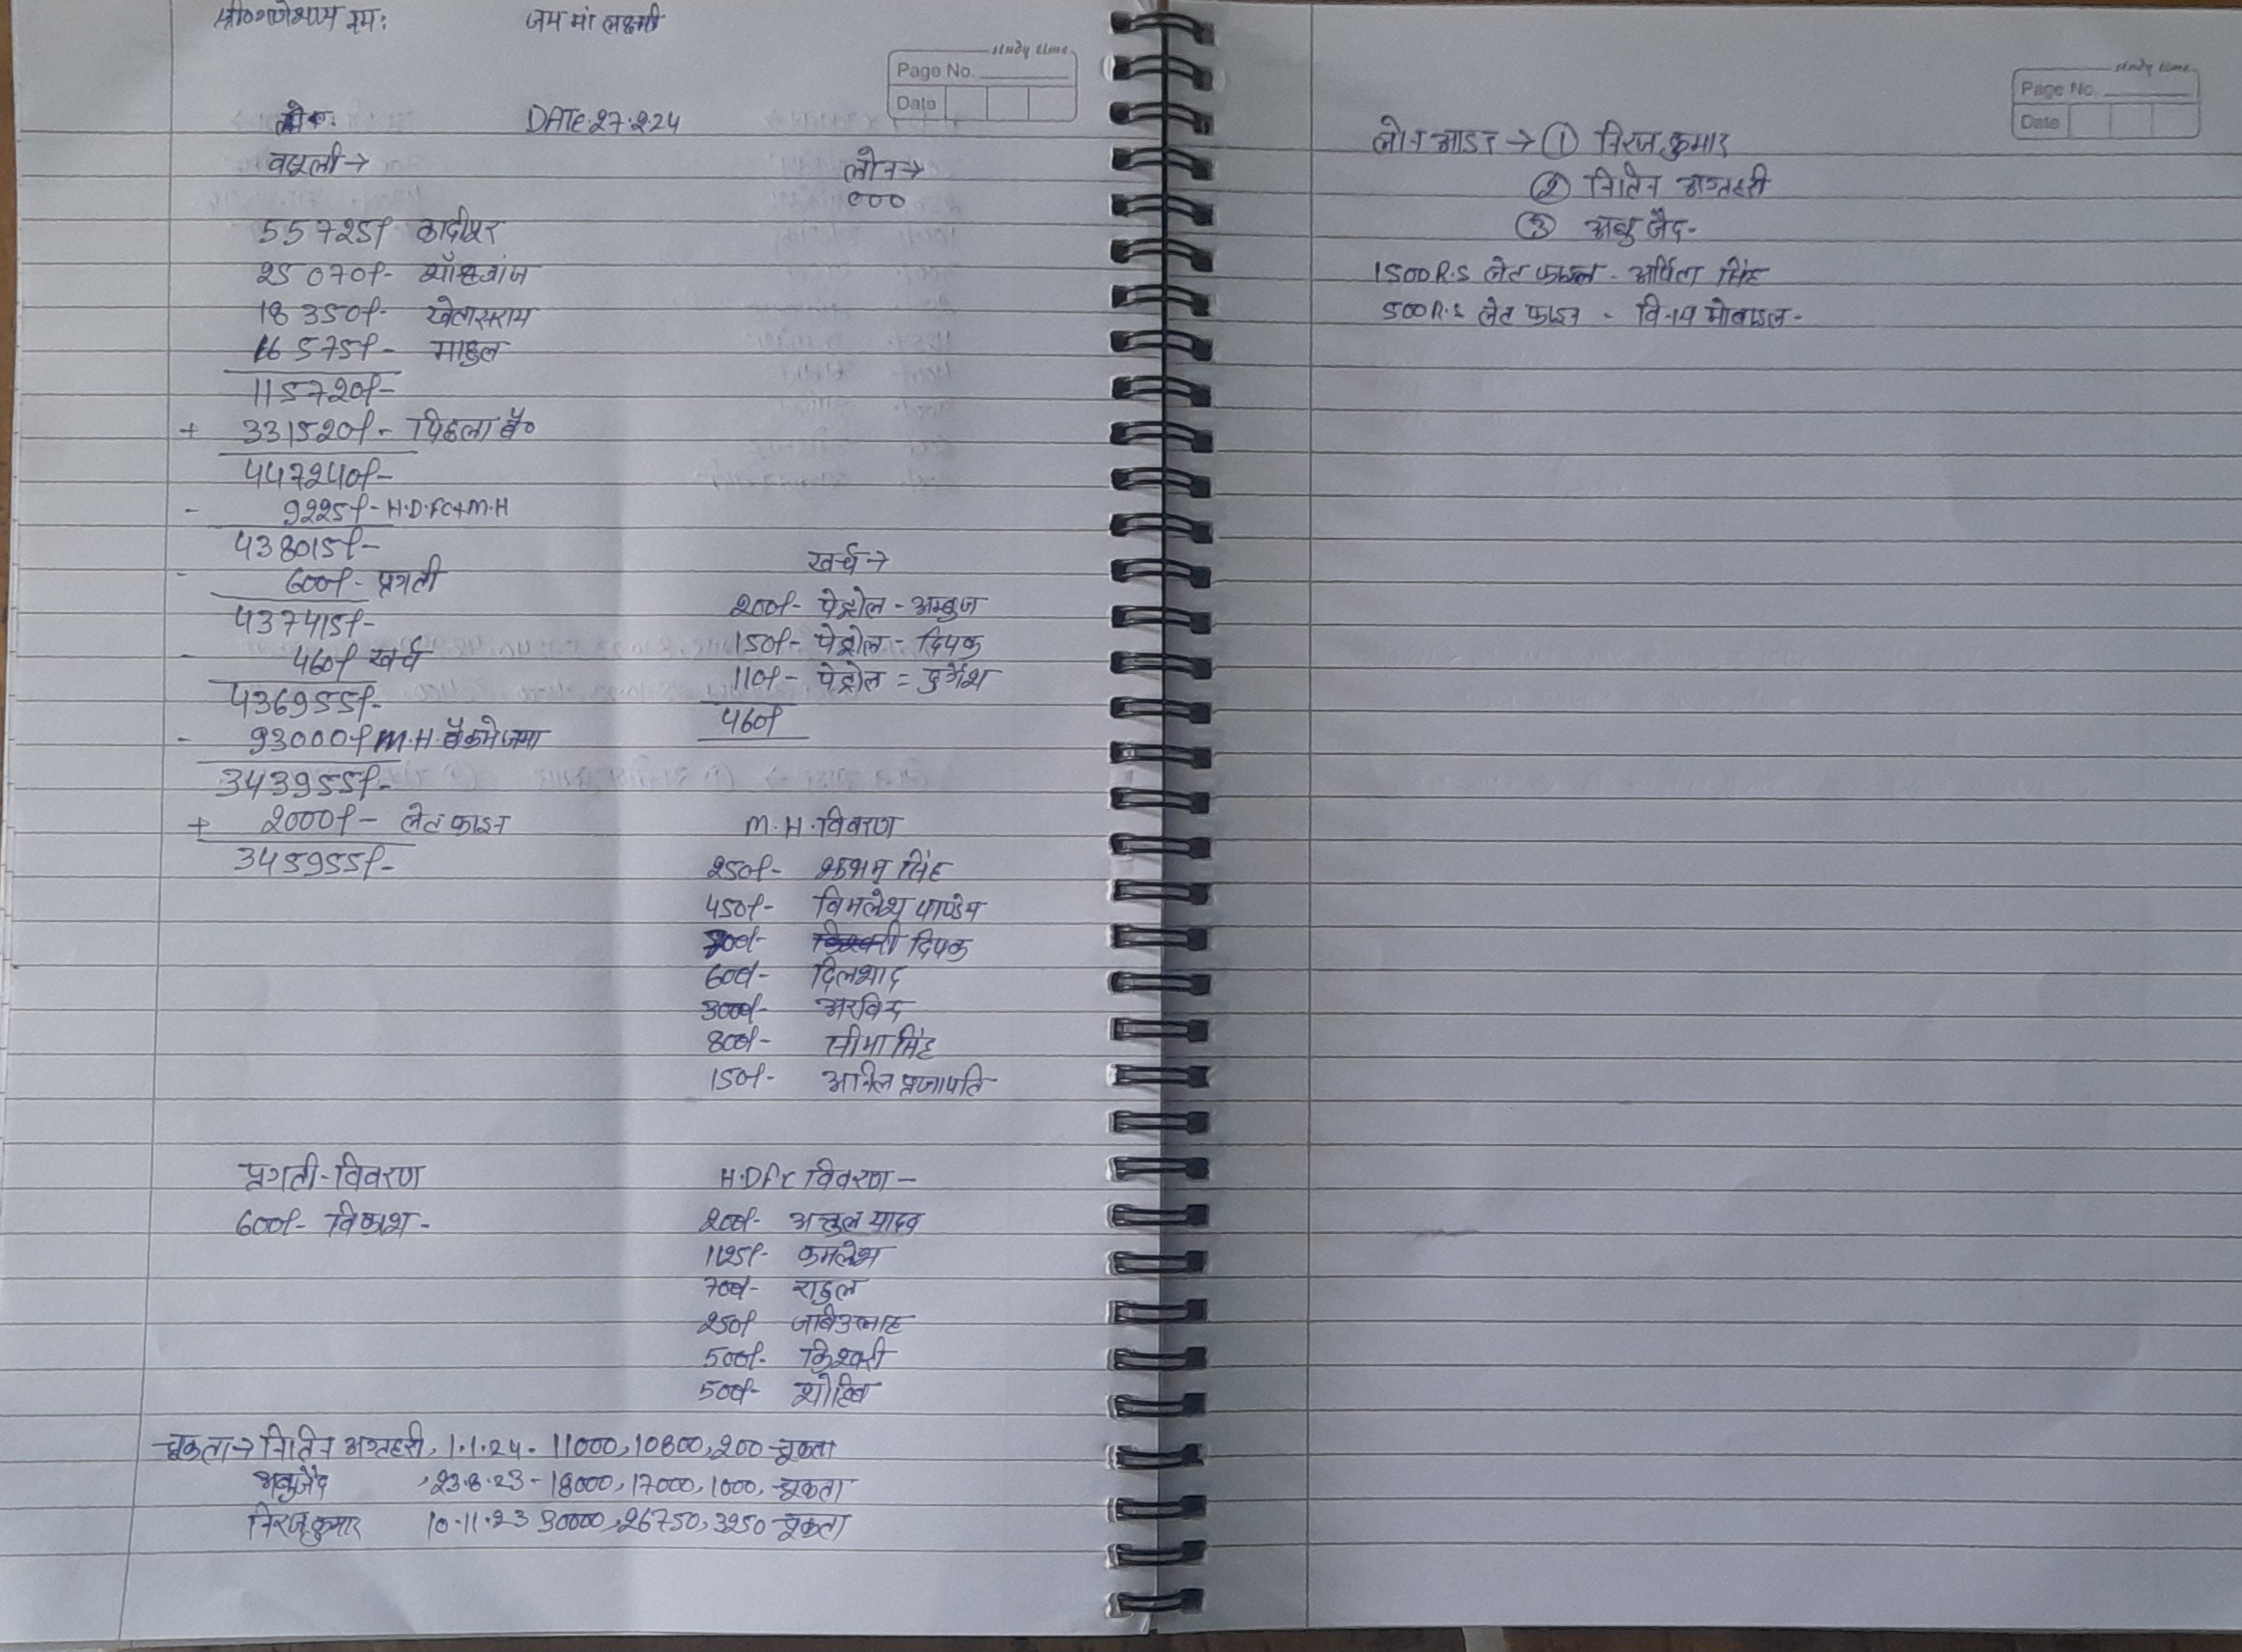 श्री गणेशाय नमः जय मां लक्ष्मी
study time
Page No.
Date
DATE:27.2.24
वसूली→
लोन→
000
55725/- कादीपुर
25070/- शाहगंज
18350/- खेतासराय
16575/- माहुल
115720/-
+ 331520/- पिछला बै०
447240/-
- 9225/- H.D.FC+M.H
438015/-
- 600/- प्रगती
437415/-
- 460/- खर्च
436955/-
- 93000/- M.H. बैंक मे जमा
343955/-
+ 2000/- लेट फाइन
345955/-
खर्च→
200/- पेट्रोल - अम्बुज
150/- पेट्रोल - दिपक
110/- पेट्रोल = दुर्गेश
460/-
M.H. विवरण
250/- सिंह
450/- विमलेश पाण्डेय
दिपक
600/- दिलशाद
3000/- अरविन्द
800/- सीमा सिंह
150/- अनिल प्रजापति
प्रगती-विवरण
600/- विकाश -
H.DFC विवरण -
200/- अतुल यादव
1125/- कमलेश
700/- राहुल
250/- जबिउल्लाह
500/- किश्वरी
500/- शोहिब
चूकता→ नितिन अग्रहरी, 1.1.24. 11000, 10800, 200 चूकता
अबुजैद , 23.8.23 - 18000, 17000, 1000, चूकता
निरज कुमार 10.11.23 30000, 26750, 3250 चूकता
study time
Page No.
Date
लोन आडर → ① निरज कुमार
② नितिन अग्रहरी
③ अबु जैद-
1500R.S लेट फाइन - अर्पिता सिंह
500R.S लेट फाइन - विनय मोबाइल -